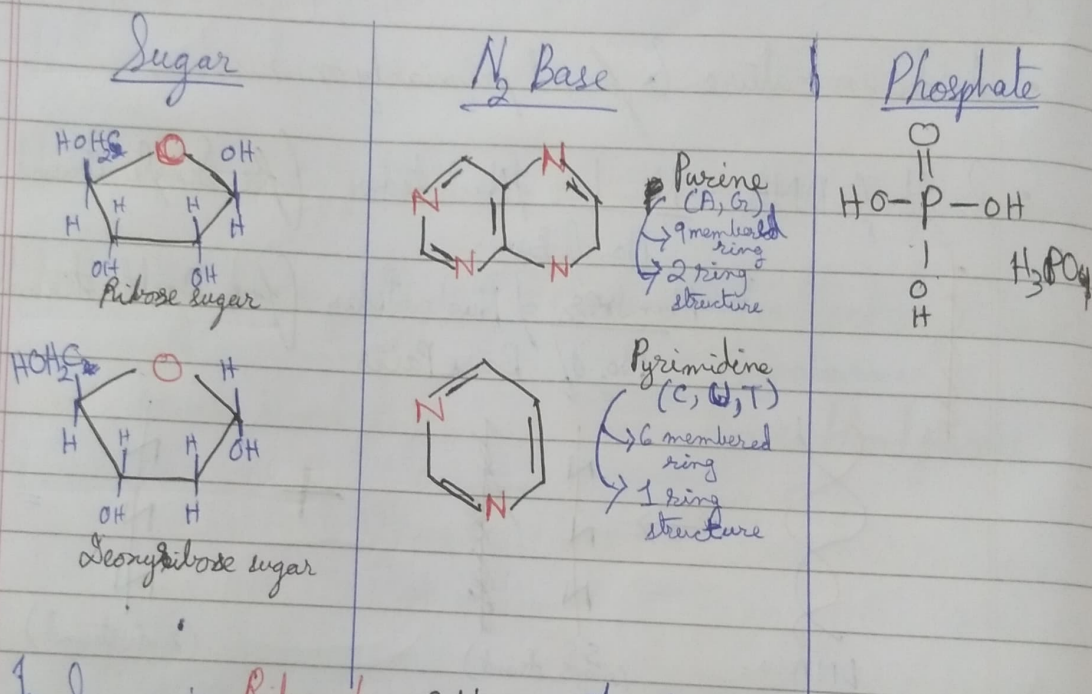 Sugar
HOH₂C O OH
H H H H
OH OH
Ribose sugar
HOH₂C O H
H H H OH
OH H
Deoxyribose sugar
N₂ Base
N
N
N N
Purine
(A, G)
→ 9 membered
ring
→ 2 ring
structure
N
N
Pyrimidine
(C, U, T)
→ 6 membered
ring
→ 1 ring
structure
Phosphate
O
HO-P-OH
H₃PO₄
O
H